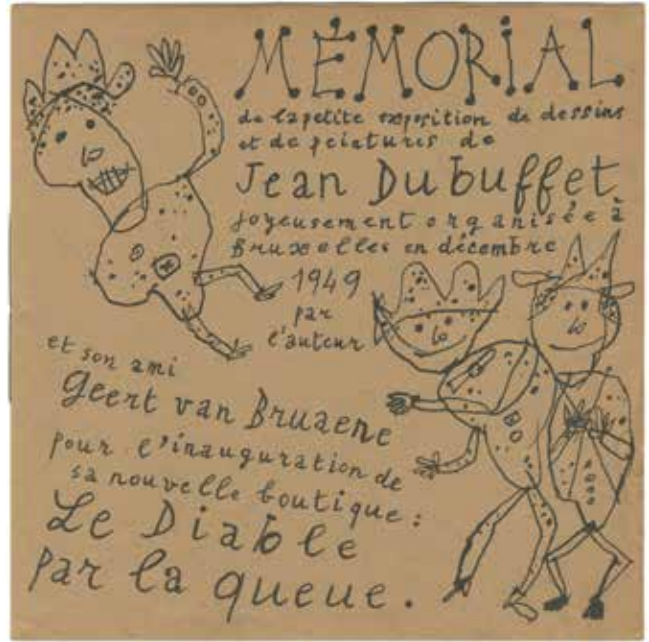 MÉMORIAL
de la petite exposition de dessins
et de peintures de
Jean Dubuffet
joyeusement organisée à
Bruxelles en décembre
1949
par
l'auteur
et son ami
Geert van Bruaene
pour l'inauguration de
sa nouvelle boutique :
Le Diable
par la queue.